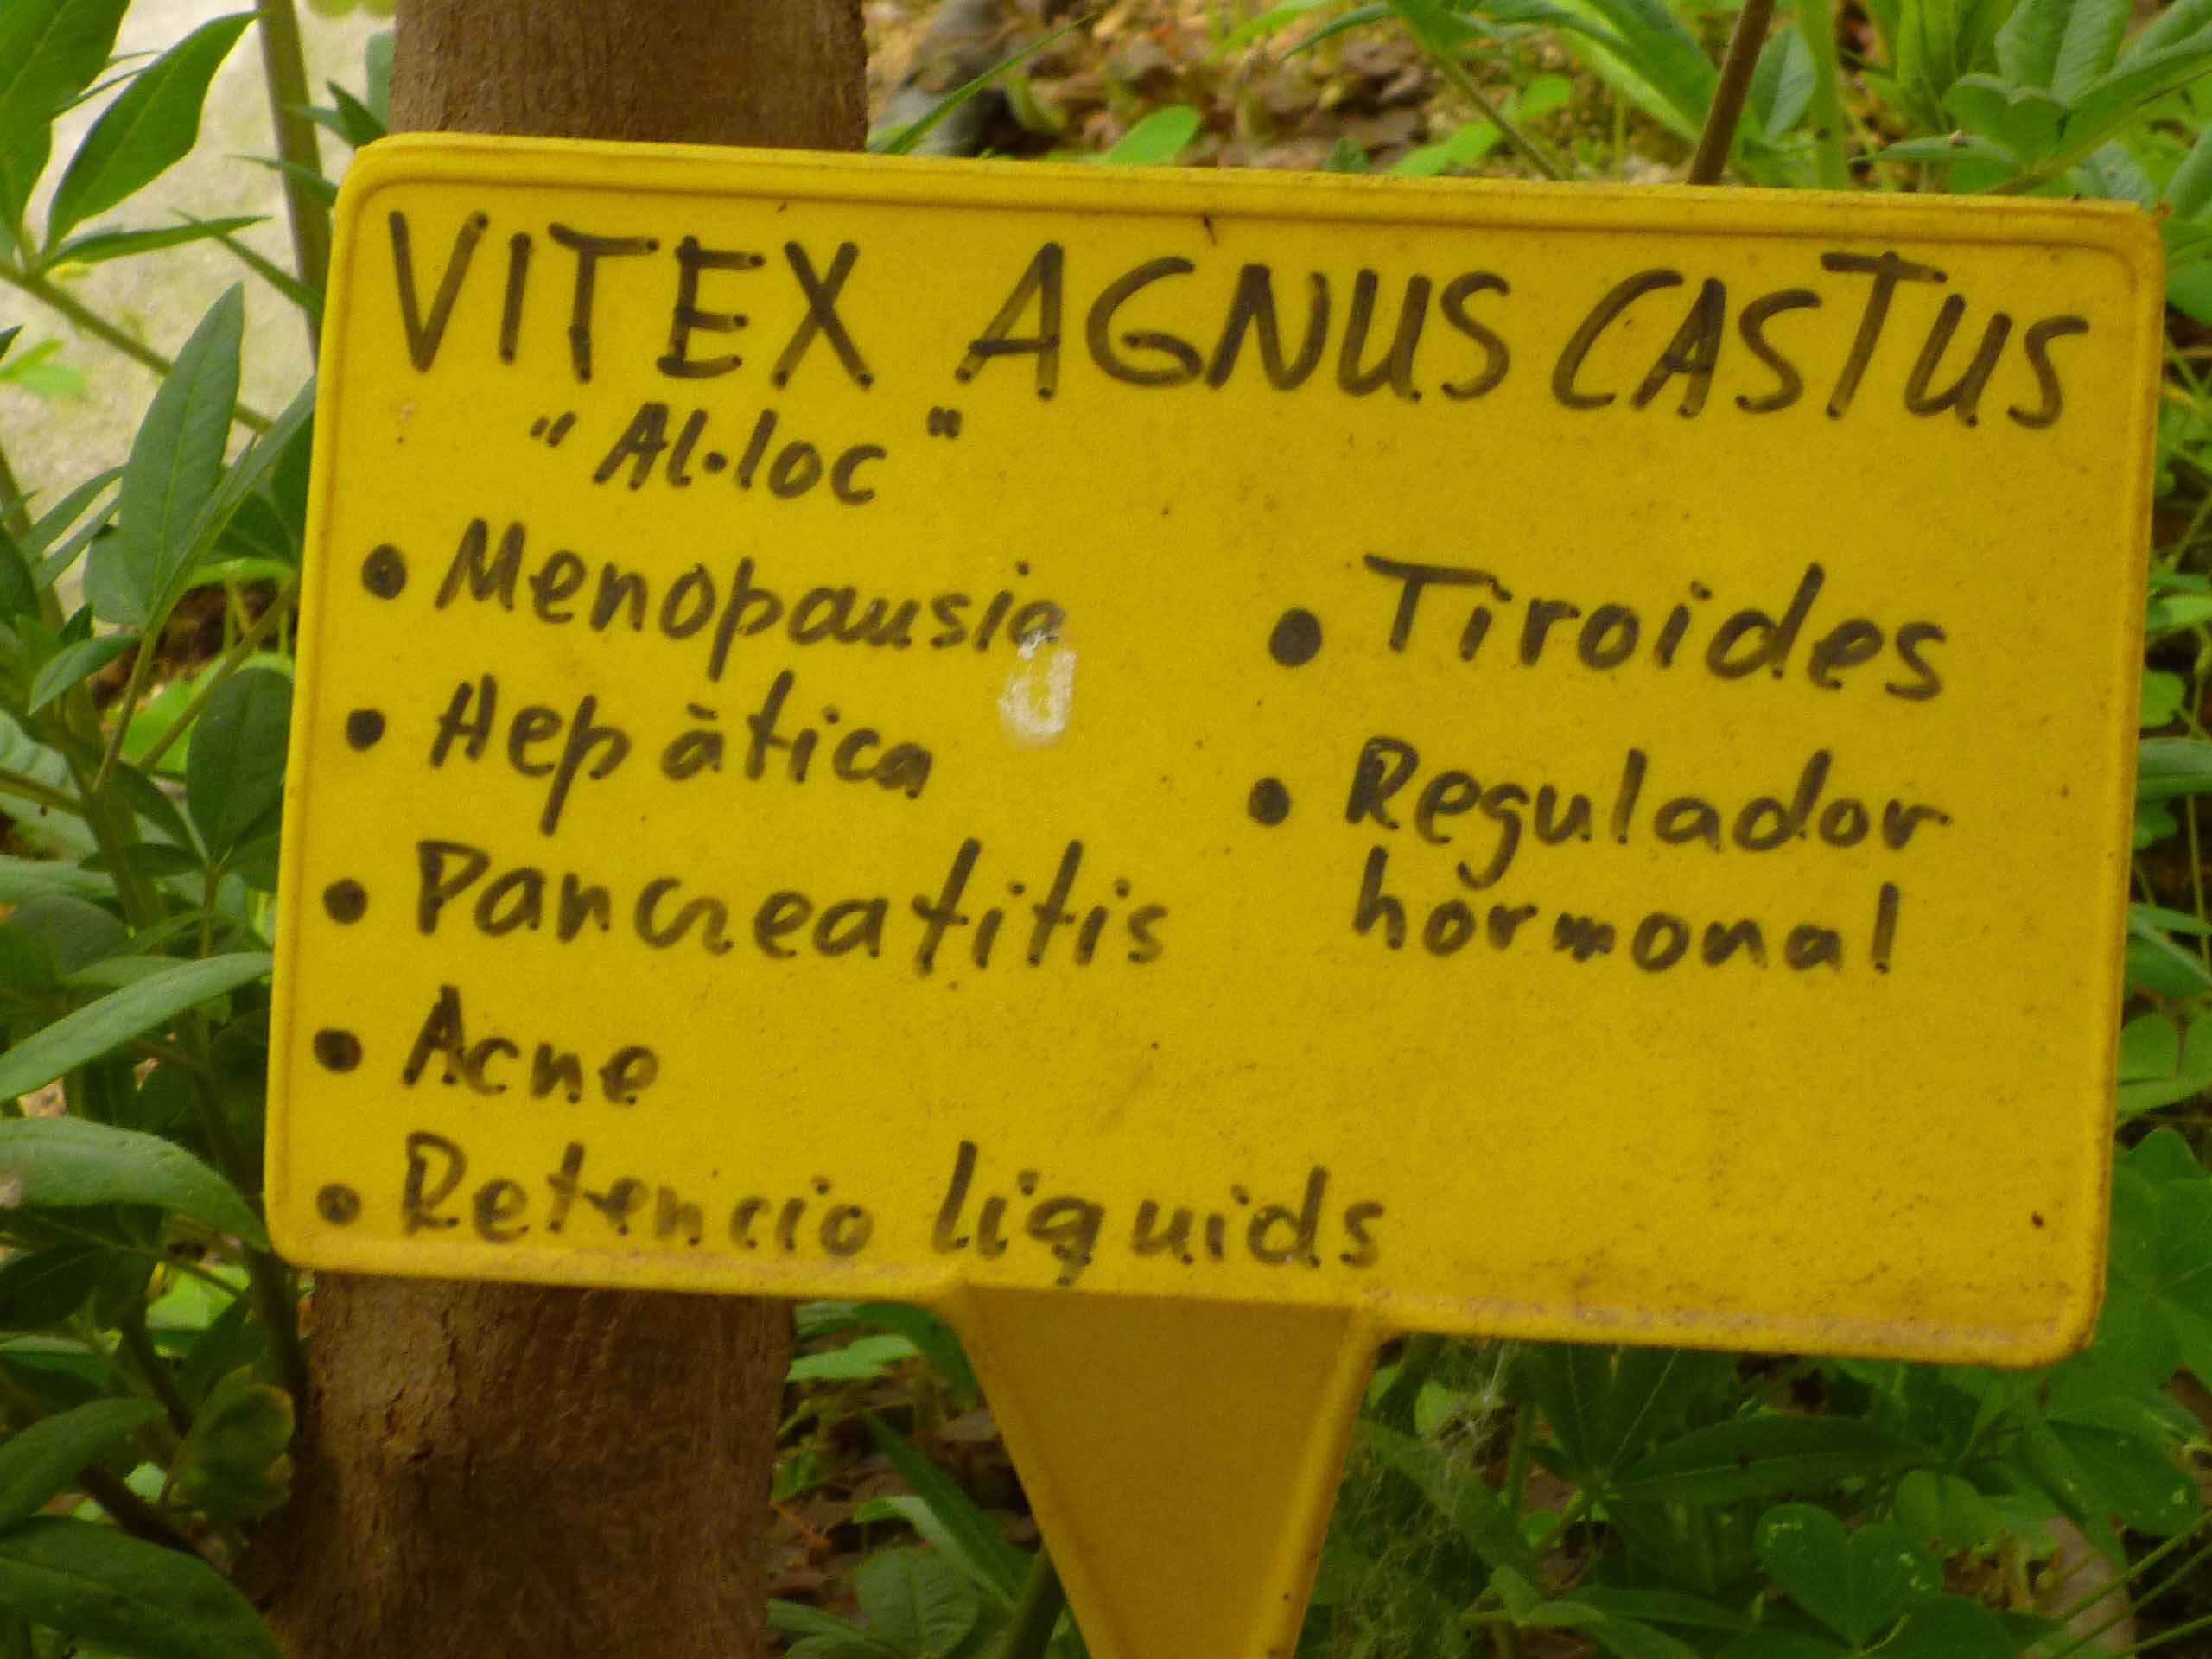 VITEX AGNUS CASTUS
"Al·loc"
• Menopausia
• Hepàtica
• Pancreatitis
• Acne
• Retencio liquids
• Tiroides
• Regulador
hormonal